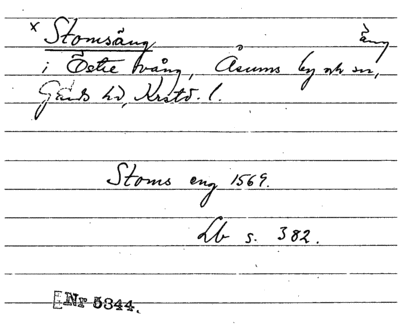 × Stomsäng äng
i Östre vång, Åsums by och sn,
Gärds hd, Krstd. l.
Stoms eng 1569.
Lb s. 382.
E Nr 5344.